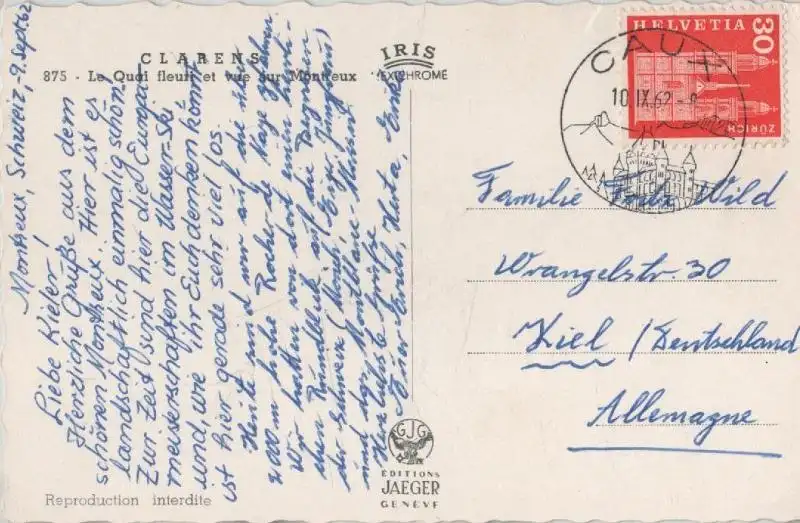 CLARENS
875 - Le Quai fleuri et vue sur Montreux
IRIS
MEXICHROME
HELVETIA
30
ZÜRICH
CAUX
10.IX.62
Montreux, Schweiz, 9. Sept. 62
Liebe Kieler!
Herzliche Grüße aus dem
schönen Montreux. Hier ist es
landschaftlich einmalig schön.
Zur Zeit sind hier die Europa-
meisterschaften im Wasser-Ski
und, wie ihr Euch denken könnt
ist hier gerade sehr viel los.
Heute sind wir auf die
2000 m hohe Rochers de Naye
Wir hatten von dort einen herrli-
chen Rundblick auf die Bergriesen
der Schweiz (Mönch, Eiger, Jungfrau)
und das Montblanc-Massiv
Herzlichste Grüße
Euer Erich, Herta,
Familie Fritz Wild
Wrangelstr. 30
Kiel / Deutschland
Allemagne
GJG
EDITIONS
JAEGER
GENÈVE
Reproduction interdite